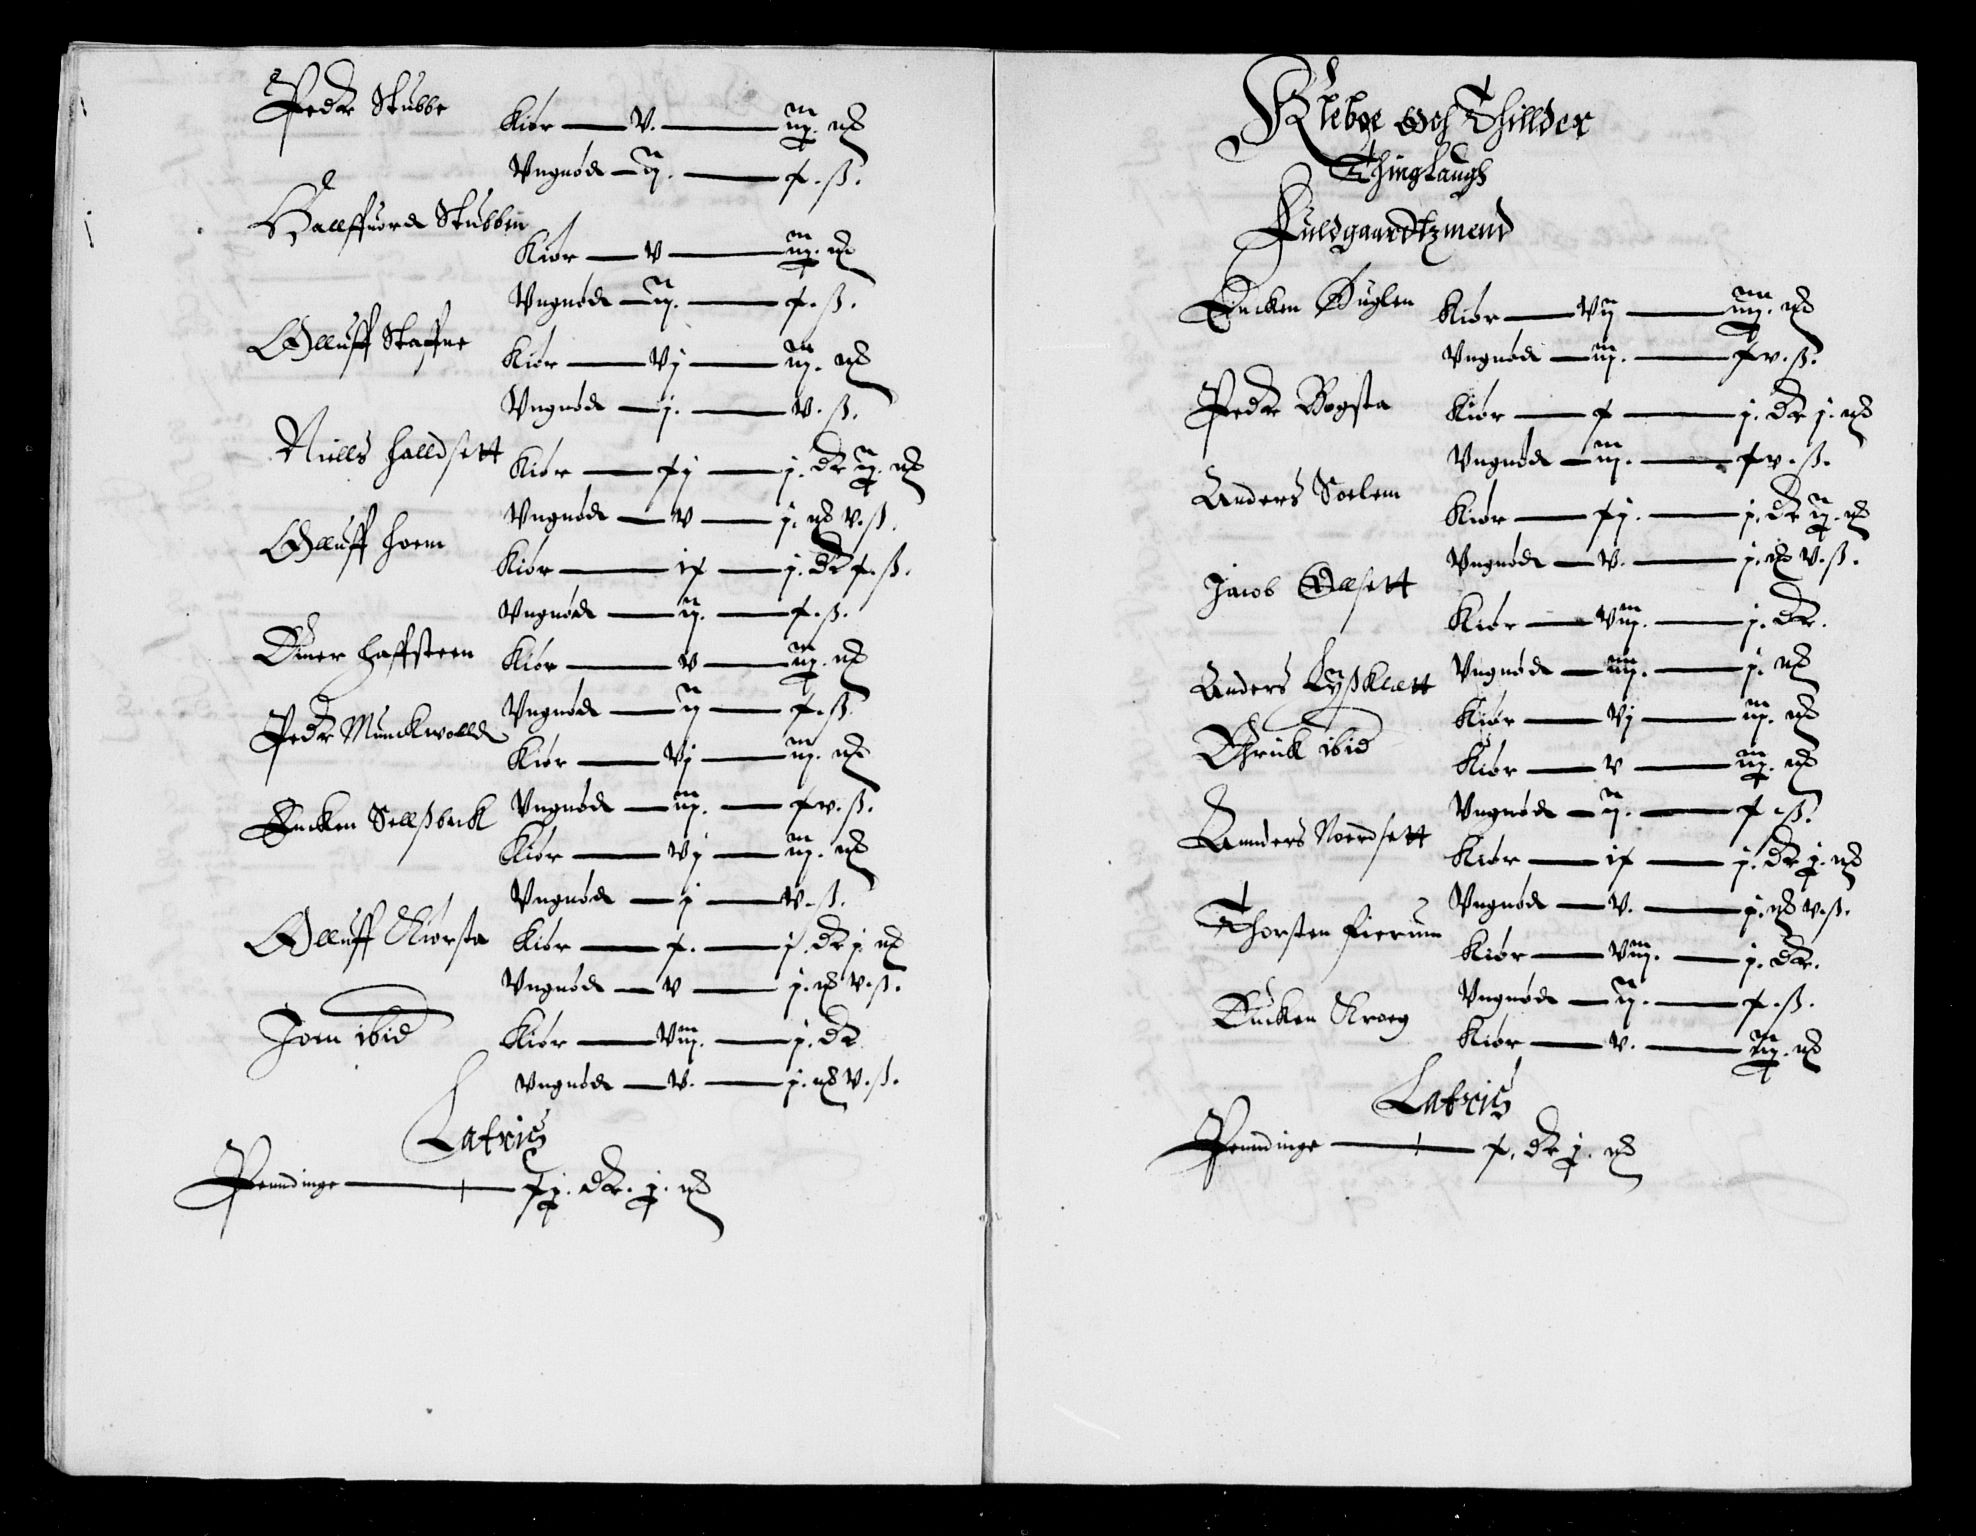 Peder Stubbe
Kiør — v. — iij. ɱ
Vngnød — ij. — x. ß.
Hallffuord Stubben
Kiør — v — iij. ɱ
Vngnød — ij. — x. ß.
Olluff Staffne
Kiør — vj — iij. ɱ
Vngnød — j. — v. ß.
Niells Halldsett
Kiør — xj — j. dr ij. ɱ
Vngnød — v — j. ɱ v. ß.
Olluff Hoem
Kiør — ix — j. dr x. ß.
Vngnød — ij. — x. ß.
Einer Haffsteen
Kiør — v — iij. ɱ
Vngnød — ij — x. ß.
Peder Munckwolld
Kiør — vj — iij. ɱ
Vngnød — iij. — xv. ß.
Encken Sellßbeck
Kiør — vj — iij. ɱ
Vngnød — j — v. ß.
Olluff Kiørsta
Kiør — x. — j. dr j ɱ
Vngnød — v — j. ɱ v. ß.
Joen ibid
Kiør — viij. — j. dr
Vngnød — v. — j. ɱ v. ß.
Lateris
Penndinge — xj. dr. j. ɱ
Kleboe Och Thillder
Thinglaugh
Fuldgaardtzmend
Encken Duglen
Kiør — vij — iiij. ɱ
Vngnød — iij. — xv. ß.
Peder Bogsta
Kiør — x — j. dr j. ɱ
Vngnød — iij. — xv. ß.
Anders Soelem
Kiør — xj. — j. dr ij. ɱ
Vngnød — v. — j. ɱ v. ß.
Jacob Ollsett
Kiør — viij. — j. dr.
Vngnød — iiij. — j. ɱ
Anders Lyßklett
Kiør — vj — iij. ɱ
Ehrick ibid
Kiør — v — iij. ɱ
Vngnød — ij. — x. ß.
Annders Noerdsett
Kiør — ix — j. dr j. ɱ
Vngnød — v. — j. ɱ v. ß.
Thorsten Fierum
Kiør — viij. — j. dr.
Vngnød — ij. — x. ß.
Encken Kroeg
Kiør — v. — iij. ɱ
Lateris
Penndinge — x. dr j. ɱ